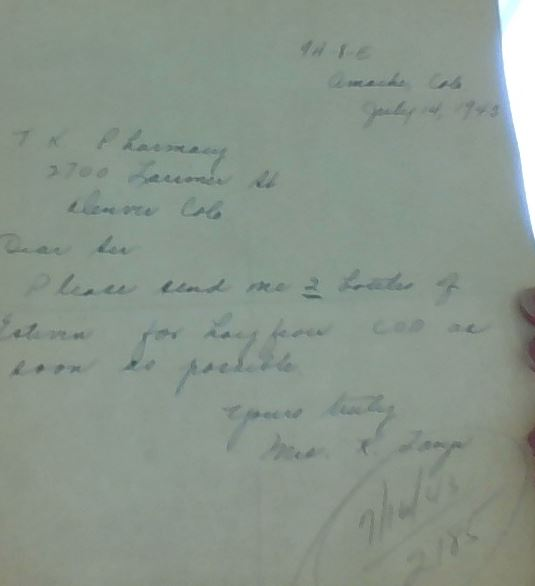 9H-8-E
Amache, Colo
July 14, 1943
T K Pharmacy
2700 Larimer St
Denver Colo
Dear Sir
Please send me 2 bottles of
for Hayfever COD as
soon as possible
Yours truly
Mrs. K.
7/16/43
2185